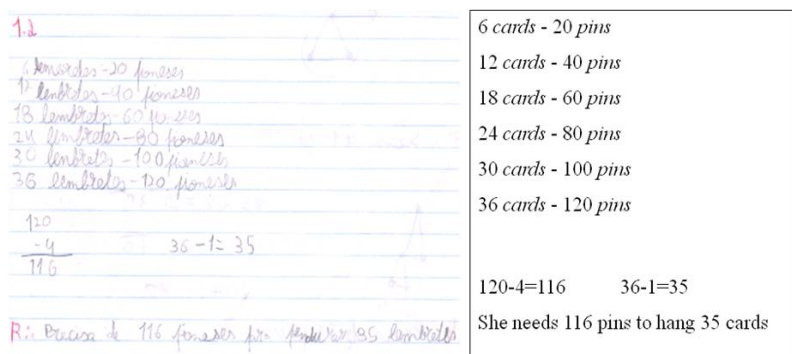 1.2
6 lembretes - 20 pioneses
12 lenbretes - 40 pioneses
18 lembretes - 60 pioneses
24 lembretes - 80 pioneses
30 lenbretes - 100 pioneses
36 lembretes - 120 pioneses
120
-4
116
36 - 1 = 35
R: Precisa de 116 pioneses pra pendurar 35 lembretes
6 cards - 20 pins
12 cards - 40 pins
18 cards - 60 pins
24 cards - 80 pins
30 cards - 100 pins
36 cards - 120 pins
120-4=116 36-1=35
She needs 116 pins to hang 35 cards